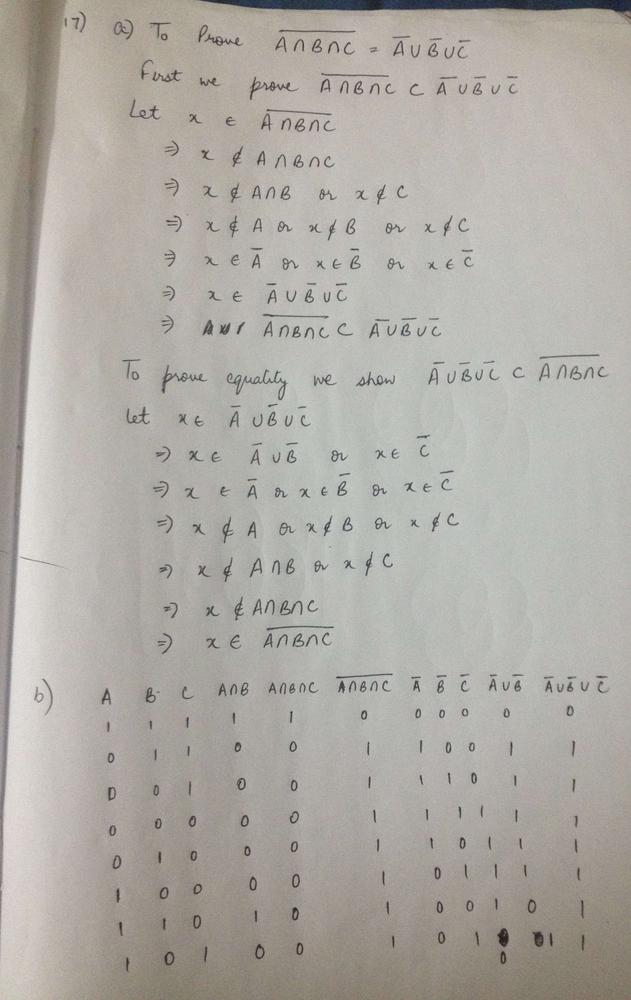 17) a) To Prove A̅∩̅B̅∩̅C̅ = A̅ ∪ B̅ ∪ C̅
First we prove A̅∩̅B̅∩̅C̅ ⊂ A̅ ∪ B̅ ∪ C̅
Let x ∈ A̅∩̅B̅∩̅C̅
⇒ x ∉ A∩B∩C
⇒ x ∉ A∩B or x ∉ C
⇒ x ∉ A or x ∉ B or x ∉ C
⇒ x ∈ A̅ or x ∈ B̅ or x ∈ C̅
⇒ x ∈ A̅ ∪ B̅ ∪ C̅
⇒ A̅∩̅B̅∩̅C̅ ⊂ A̅ ∪ B̅ ∪ C̅
To prove equality we show A̅ ∪ B̅ ∪ C̅ ⊂ A̅∩̅B̅∩̅C̅
let x ∈ A̅ ∪ B̅ ∪ C̅
⇒ x ∈ A̅ ∪ B̅ or x ∈ C̅
⇒ x ∈ A̅ or x ∈ B̅ or x ∈ C̅
⇒ x ∉ A or x ∉ B or x ∉ C
⇒ x ∉ A∩B or x ∉ C
⇒ x ∉ A∩B∩C
⇒ x ∈ A̅∩̅B̅∩̅C̅
b) A B C A∩B A∩B∩C A̅∩̅B̅∩̅C̅ A̅ B̅ C̅ A̅∪B̅ A̅∪B̅∪C̅
1 1 1 1 1 0 0 0 0 0 0
0 1 1 0 0 1 1 0 0 1 1
0 0 1 0 0 1 1 1 0 1 1
0 0 0 0 0 1 1 1 1 1 1
0 1 0 0 0 1 1 0 1 1 1
1 0 0 0 0 1 0 1 1 1 1
1 1 0 1 0 1 0 0 1 0 1
1 0 1 0 0 1 0 1 0 1 1